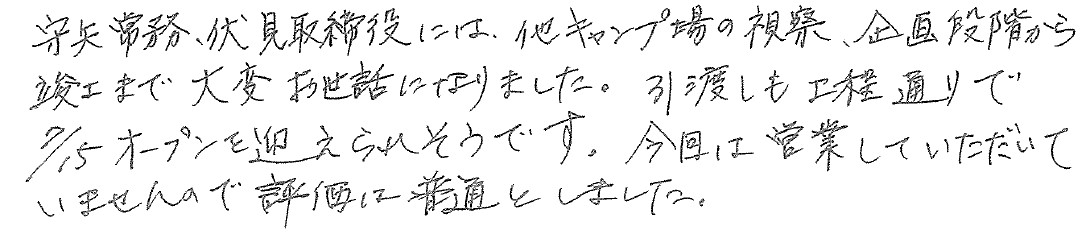 守矢常務、伏見取締役には、他キャンプ場の視察、企画段階から
竣工まで大変お世話になりました。引渡しも工程通りで
7/15オープンを迎えられそうです。今回は営業していただいて
いませんので評価は普通としました。